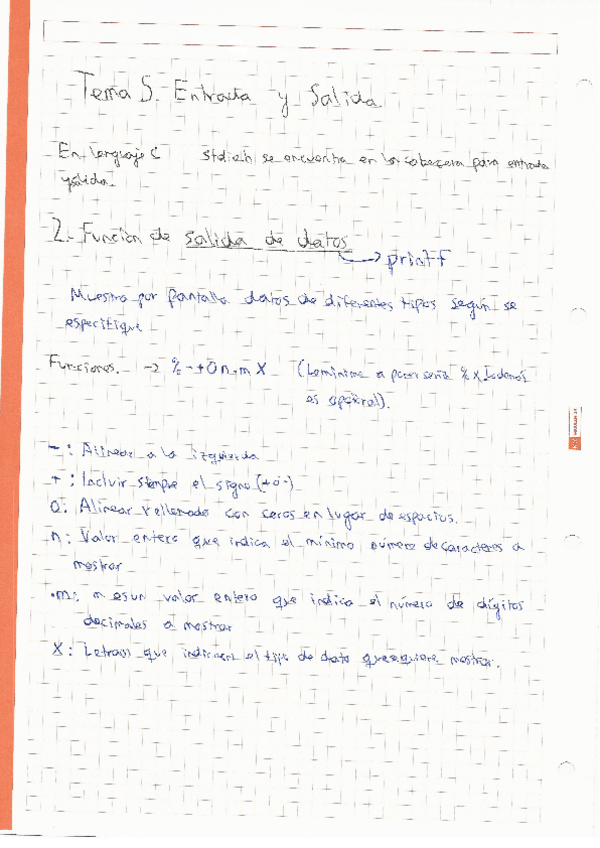 Tema 5. Entrada y Salida
En lenguaje C stdio.h se encuentra en la cabecera para entrada
y salida.
2. Función de salida de datos
→ printf
Muestra por pantalla datos de diferentes tipos según se
especifique
Funciones. → % - + 0 n . m X (Lo mínimo a poner sería % x lo demás
es opcional).
- : Alinear a la izquierda
+ : Incluir siempre el signo (+ o -)
0: Alinear rellenado con ceros en lugar de espacios.
n: Valor entero que indica el mínimo número de caracteres a
mostrar
.m: m es un valor entero que indica el número de dígitos
decimales a mostrar
X: Letras que indican el tipo de dato que se quiere mostrar.